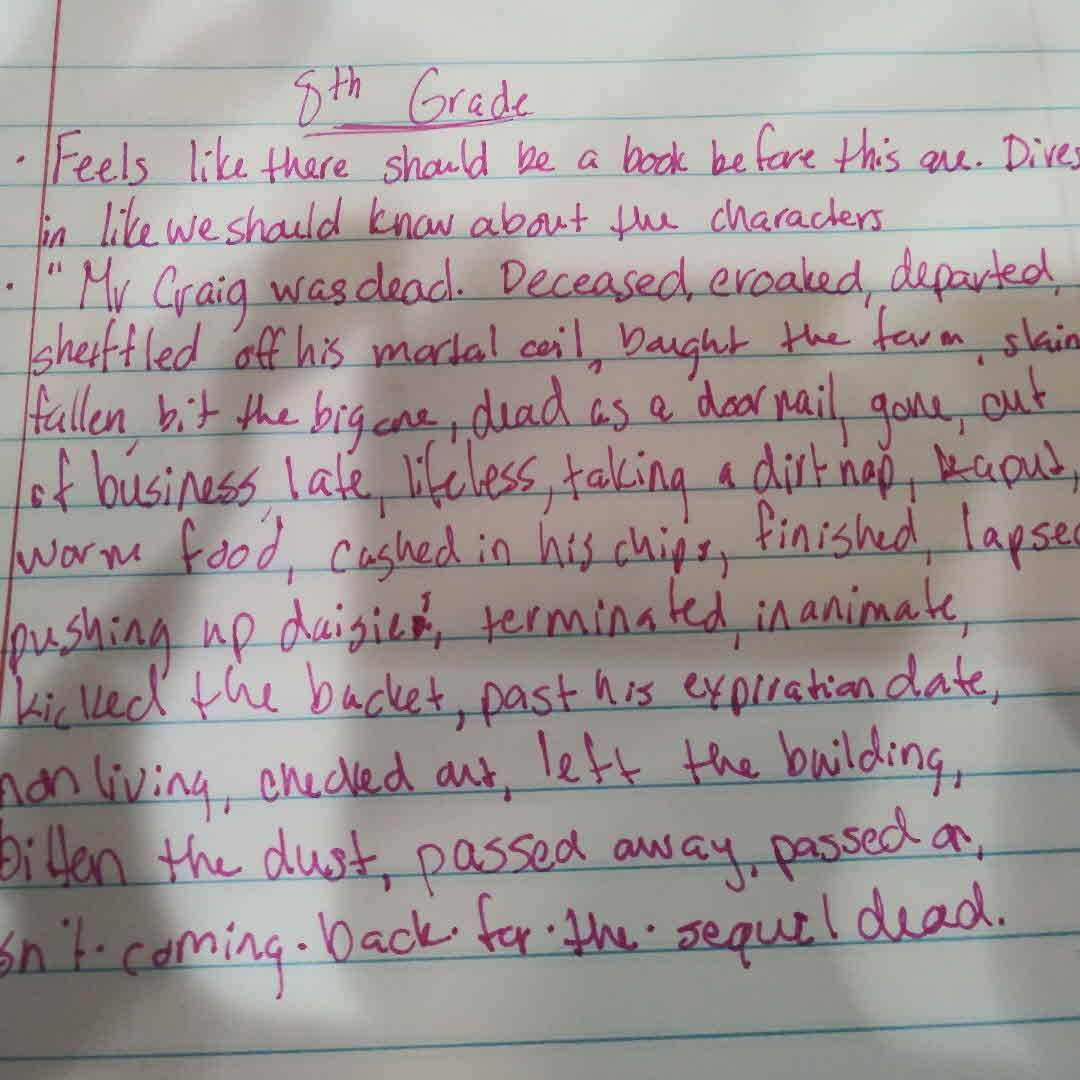 8th Grade
· Feels like there should be a book before this one. Dives
in like we should know about the characters
· "Mr Craig was dead. Deceased, croaked, departed,
shuffled off his mortal coil, bought the farm, slain
fallen, bit the big one, dead as a door nail, gone, out
of business, late, lifeless, taking a dirt nap, kaput,
worm food, cashed in his chips, finished, lapsed
pushing up daisies, terminated, inanimate,
kicked the bucket, past his expiration date,
non living, checked out, left the building,
bitten the dust, passed away, passed on,
sn't·coming·back·for·the·sequel dead.